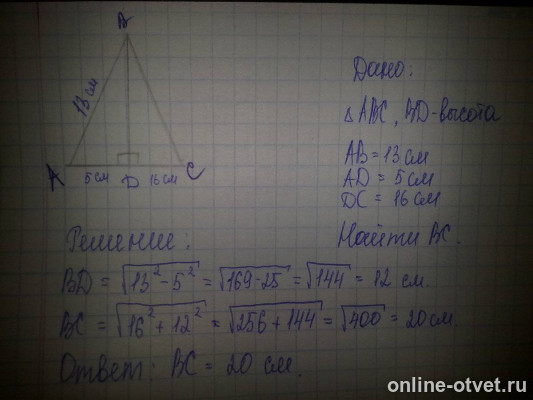 B
13 см
A
5 см
D
16 см
C
Дано:
△ ABC, BD - высота
AB = 13 см
AD = 5 см
DC = 16 см
Найти BC.
Решение:
BD = √13² - 5² = √169 - 25 = √144 = 12 см.
BC = √16² + 12² = √256 + 144 = √400 = 20 см.
Ответ: BC = 20 см.
online-otvet.ru